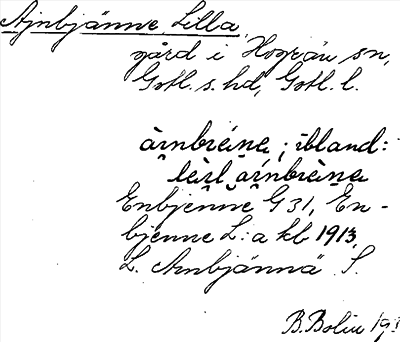 Ajnbjänne, Lilla,
gård i Hogrän sn,
Gotl. s. hd, Gotl. l.
àrnbrèinę; ibland:
lèɪl àrnbrèinę
Enbjenne G 31, En-
bjenne L:a kb 1913,
L. Ambjännä S.
B. Bolin